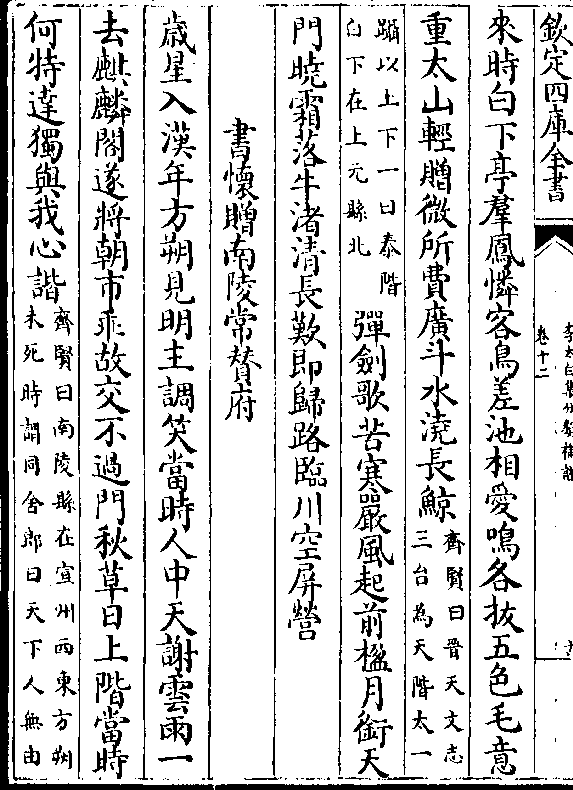 欽定四庫全書
李太白集分類補註
卷十二
來時白下亭羣鳳憐客鳥差池相愛鳴各拔五色毛意
重太山輕贈微所費廣斗水澆長鯨齊賢曰晉天文志
三台為天階太一
躡以上下一曰泰階
白下在上元縣北彈劍歌苦寒嚴風起前楹月銜天
門曉霜落牛渚清長歎即歸路臨川空屏營
書懷贈南陵常贊府
歲星入漢年方朔見明主調笑當時人中天謝雲雨一
去麒麟閣遂將朝市乖故交不過門秋草日上階當時
何特達獨與我心諧齊賢曰南陵縣在宣州西東方朔
未死時謂同舍郎曰天下人無由